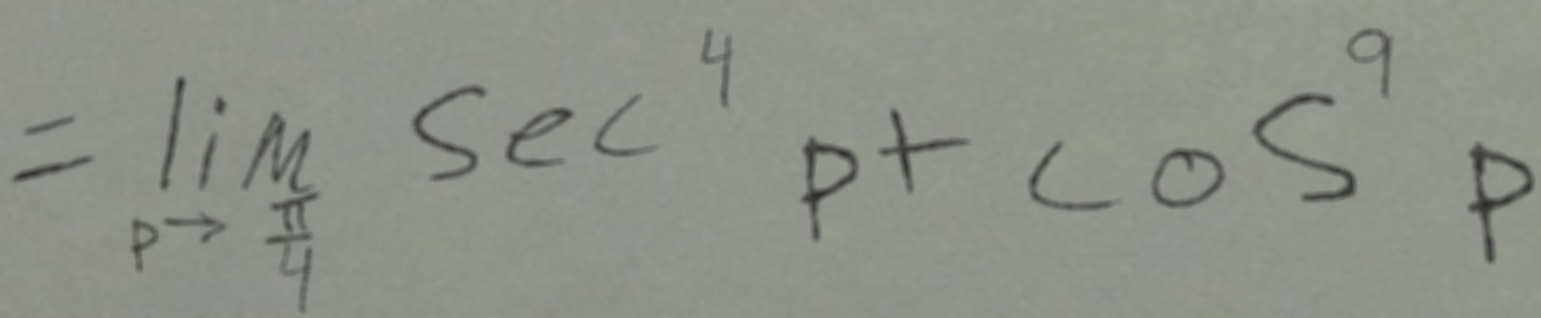 = \lim_{p \to \frac{\pi}{4}} \sec^4 p + \cos^9 p